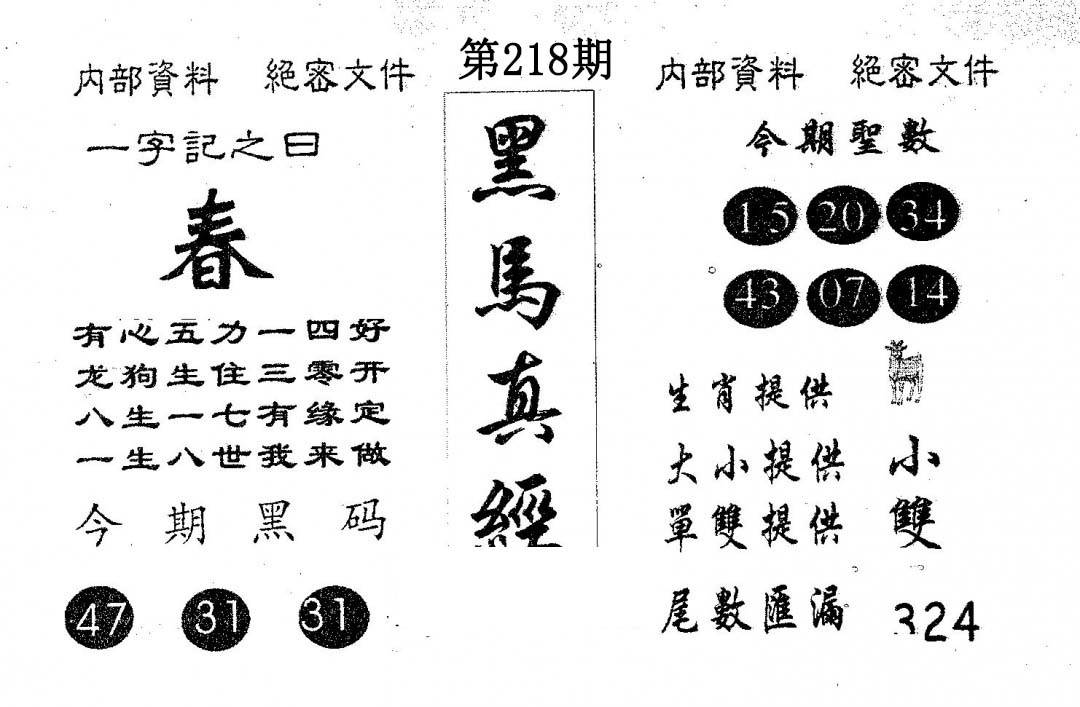 第218期
内部資料 絕密文件
一字記之曰
春
有心五力一四好
龙狗生住三零开
八生一七有缘定
一生八世我来做
今期黑码
47 31 31
黑馬真經
内部資料 絕密文件
今期聖數
15 20 34
43 07 14
生肖提供
大小提供 小
單雙提供 雙
尾數匯漏 324